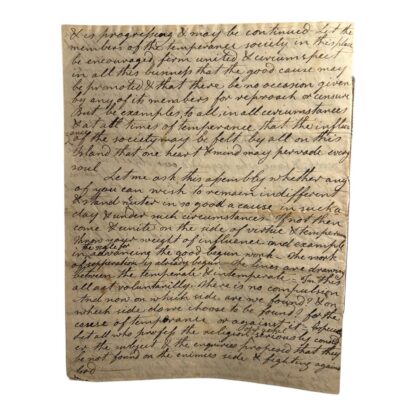 & is progressing & may be continued Let the
members of the temperance society in this place
be encouraged, firm united & circumspect
in all this business that the good cause may
be promoted & that there be no occasion given
by any of its members for reproach or censure
But be examples, to all, in all circumstances
& at all times of temperance, that the influ
ence of the society may be felt by all on this
Island that one heart & mind may pervade every
soul
Let me ask this assembly whether any
of you can wish to remain indifferent
& stand nuter in so good a cause in such a
day & under such circumstances If not then
come & unite on the side of virtue & temperan
Throw your weight of influence and example
in the scale for
in advancing the good begun work. The work
of separation by already begun lines are drawn
between the temperate & intemperate In this
all act voluntarily. There is no compulsion
And now on which side are we found? & on
which side do we choose to be found? for the
cause of temperance or against it
Let all who profess the religion seriously consid
er the subject & the enquiries proposed that they
be not found on the enimies side & fighting against
God